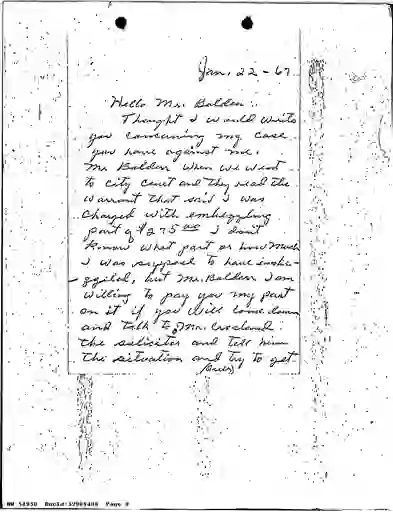 Jan, 22 - 67
Hello Mr. Balden:
Thought I would write
you concerning my case
you have against me.
Mr Balden when we went
to city court and they read the
warrant that said I was
charged with embezzling
part of $275 00 I don't
know what part or how much
I was supposed to have
but Mr. Balden I am
willing to pay you my part
on it if you will come down
and talk to Mr.
the solicitor and tell him
the situation and try to get
(over)
NW 54930 DocId:32989408 Page